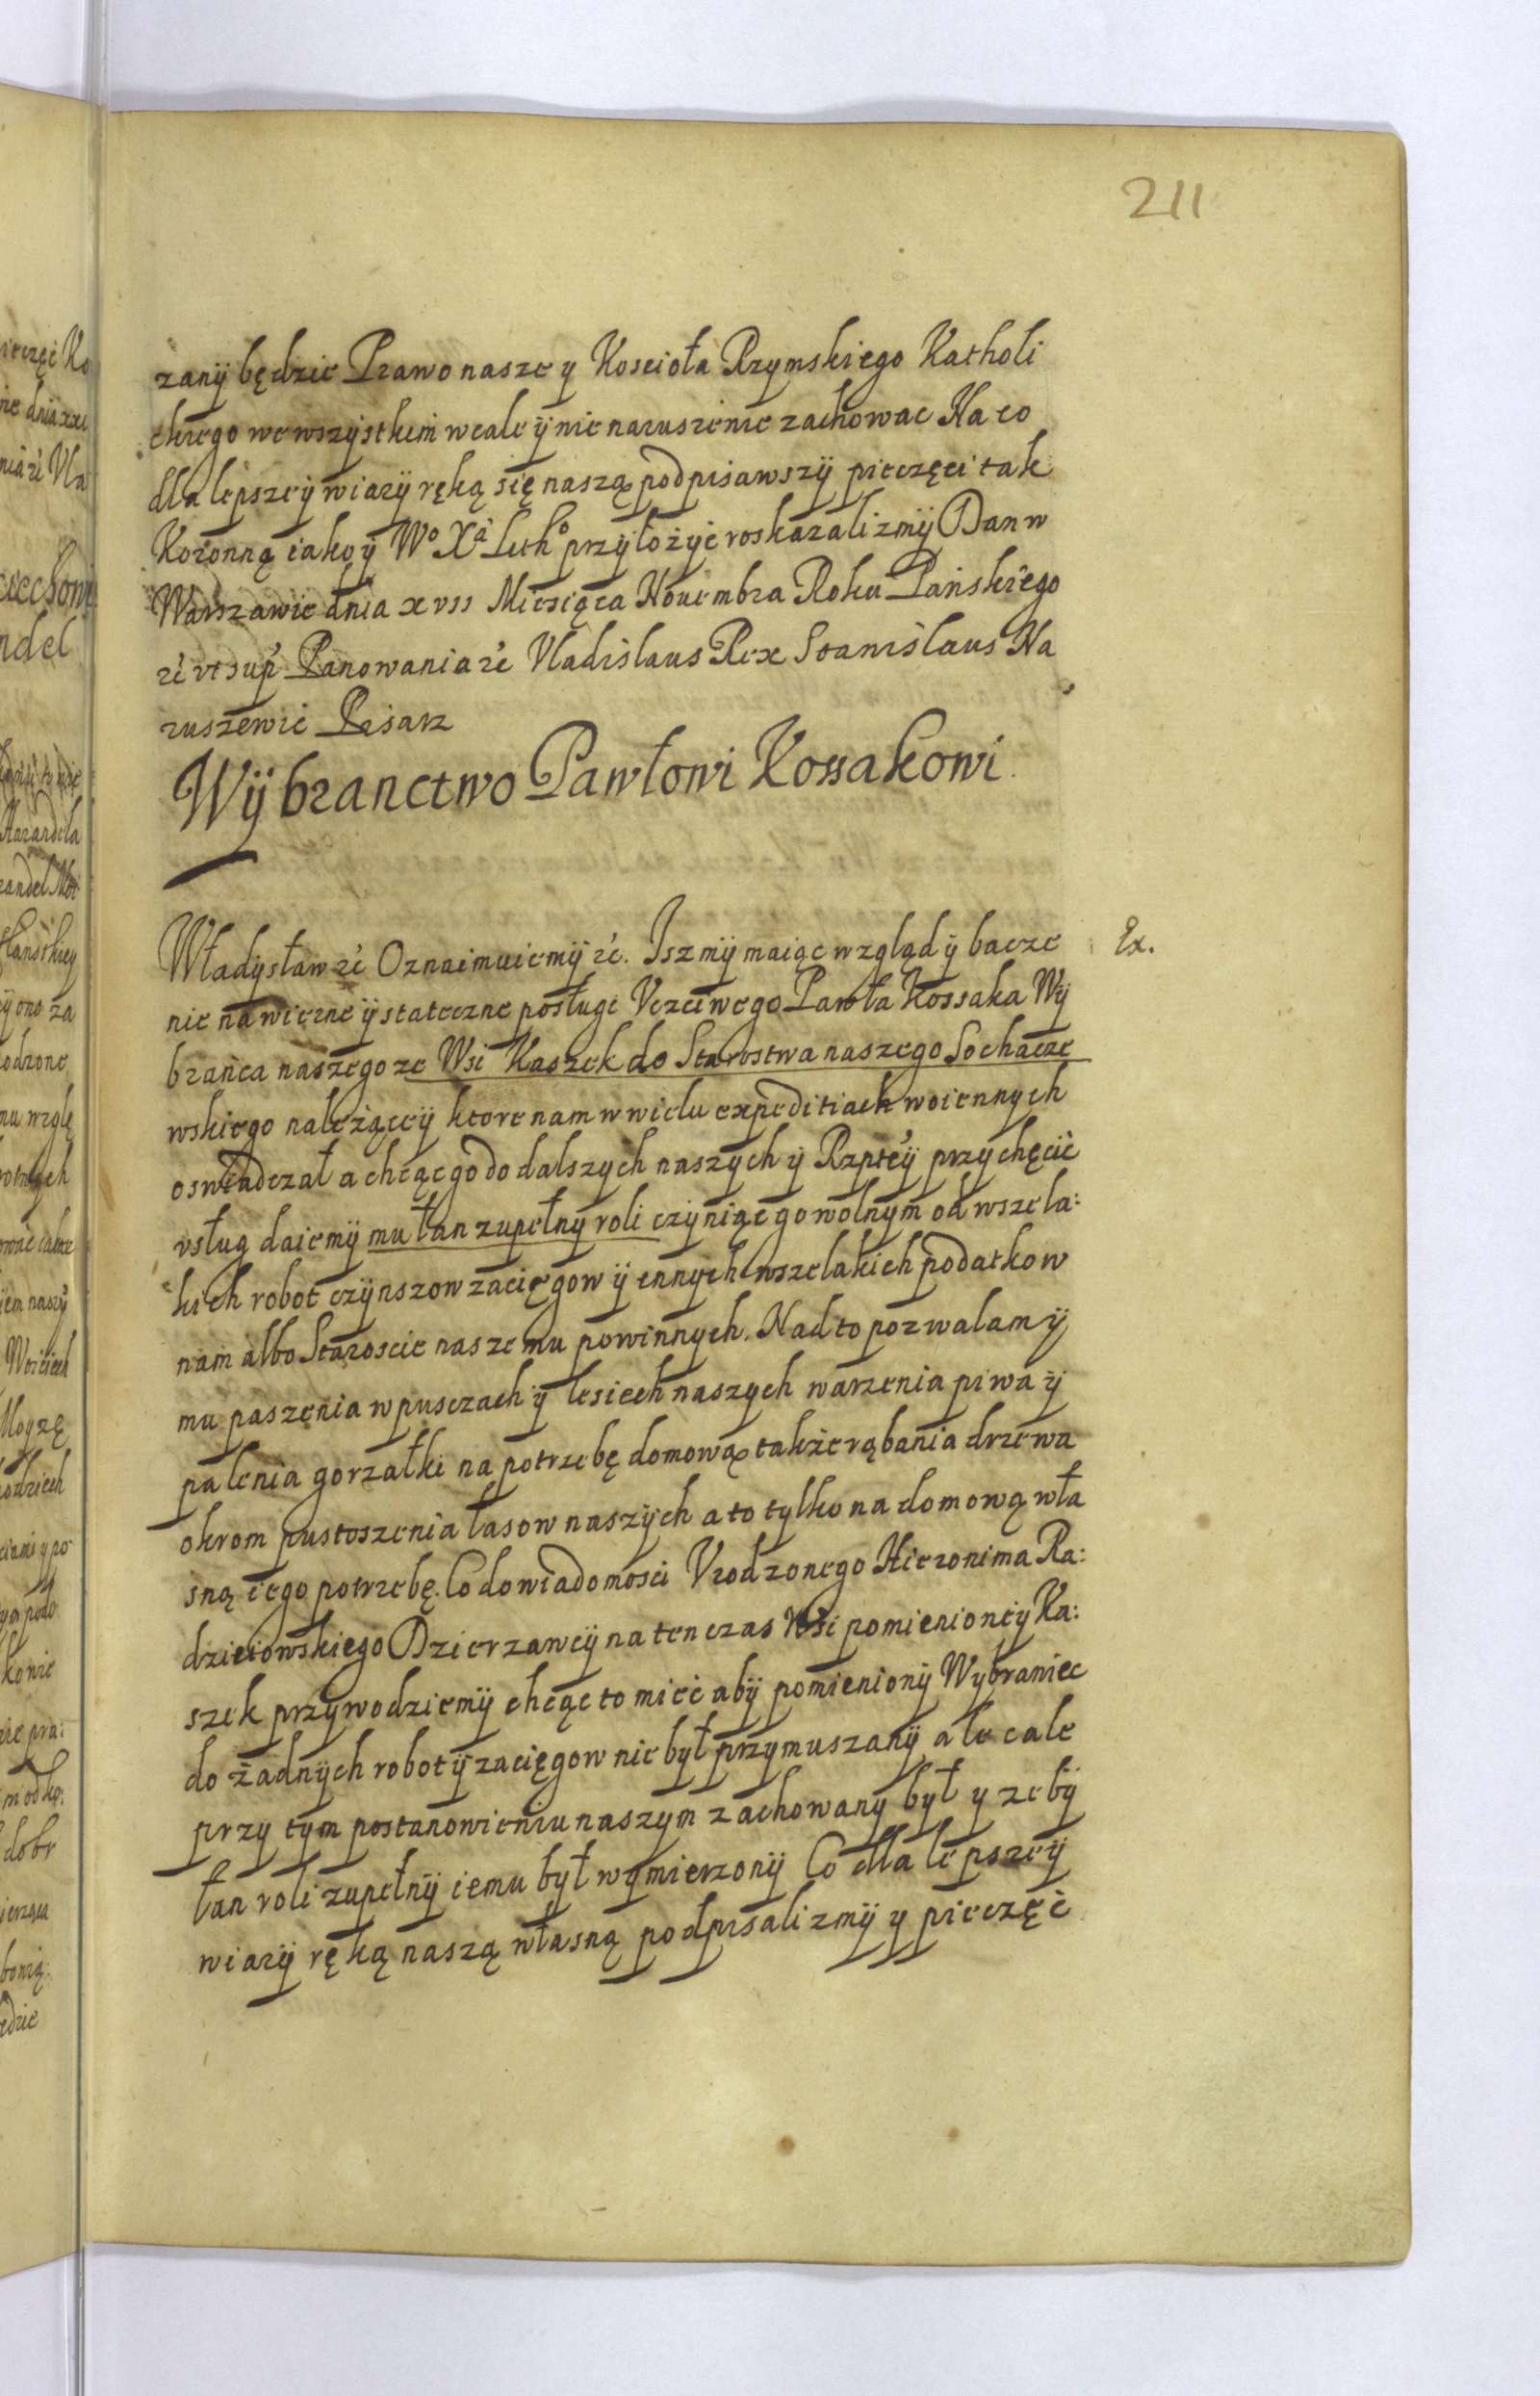 211
zany będzie Prawo nasze y Kościoła Rzymskiego Katholi
ckiego we wszystkim wcale ÿ nie naruszenie zachowac Na co
dla lepszeÿ wiarÿ ręką się naszą podpisawszÿ pieczęci tak
Koronną iako ÿ Wo Xa Lith° przyłożyć roskazalizmÿ Dan w
Warszawie dnia xvii Miesiąca Nouembra Roku Pańskiego
rć vt sup Panowania rć Vladislaus Rex Stanislaus Na
ruszewic Pisarz
Wÿbranctwo Pawłowi Kossakowi
Władysław rć Oznaimuiemÿ rć. Isz mÿ maiąc wzgląd ÿ bacze
nie na wierne ÿ stateczne posługi Vczciwego Pawła Kossaka Wÿ
brańca naszego ze Wsi Kaszek do Starostwa naszego Sochacze
wskiego należąceÿ ktore nam w wielu expeditiach woiennych
oswiadczał a chcąc go do dalszych naszych ÿ Rzpteÿ przychęcić
vsług daiemÿ mu łan zupełny roli czÿniąc go wolnym od wszela:
kich robot czÿnszow zacięgow ÿ innych wszelakich podatkow
nam albo Staroscie naszemu powinnych. Nad to pozwalamÿ
mu paszenia w pusczach ÿ lesiech naszych warzenia piwa ÿ
palenia gorzałki na potrzebę domową także rąbania drzewa
okrom pustoszenia lasow naszÿch a to tylko na domową wła
sną iego potrzebę. Co do wiadomosci Vrodzonego Hieronima Ra:
dzieiowskiego Dzierzawcÿ na ten czas Wsi pomienioneÿ Ka:
szek przÿwodziemÿ chcąc to mieć abÿ pomienionÿ Wybraniec
do żadnÿch robot ÿ zacięgow nie był przymuszanÿ ale cale
przy tym postanowieniu naszym zachowany był y zebÿ
łan roli zupełnÿ iemu był wymierzonÿ Co dla lepszeÿ
wiarÿ ręką naszą własną podpisalizmÿ y pieczęć
Ex.